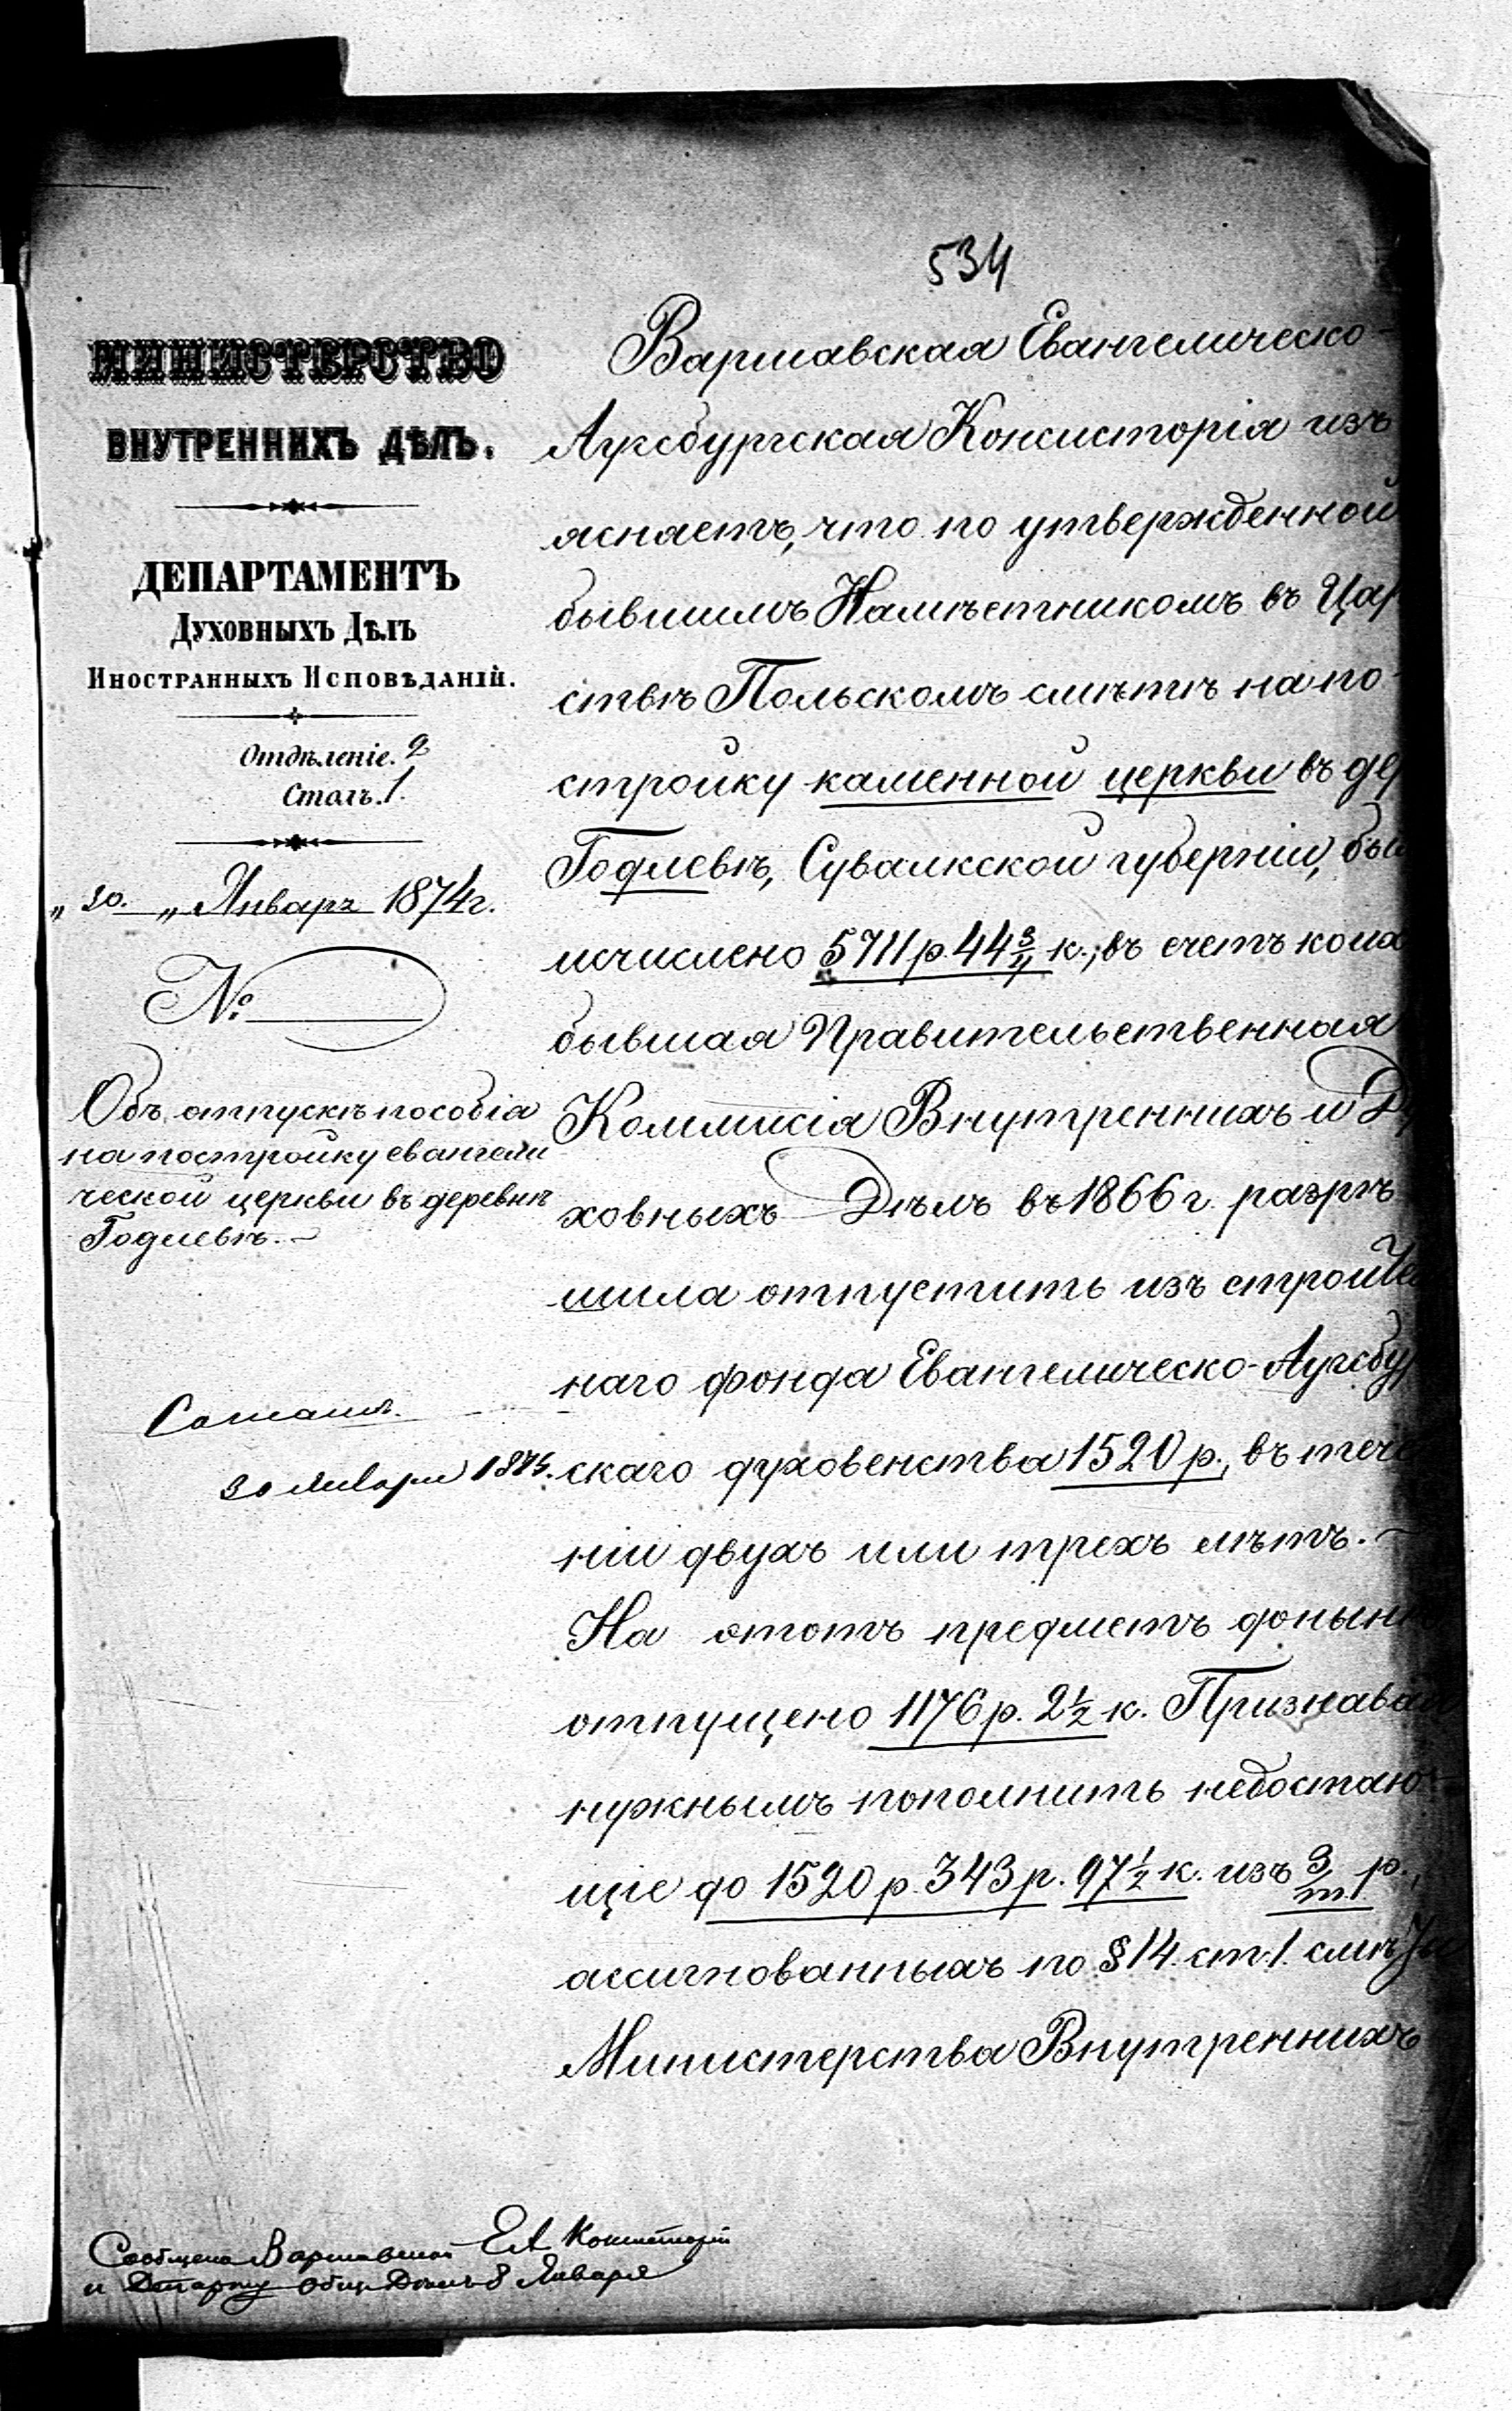 534
МИНИСТЕРСТВО
ВНУТРЕННИХЪ ДѢЛЪ.
ДЕПАРТАМЕНТЪ
ДУХОВНЫХЪ ДѢЛЪ
ИНОСТРАННЫХЪ ИСПОВѢДАНІЙ.
Отдѣленіе. 2
Столъ. 1.
„ 30. „ Январь 1874 г.
№
Объ отпускѣ пособія
на постройку евангели
ческой церкви въ деревнѣ
Годлевѣ.
30 Января 1874.
Варшавская Евангелическо-
Аугсбургская Консисторія изъ
ясняетъ, что по утвержденной
бывшимъ Намѣстникомъ въ Цар
ствѣ Польскомъ смѣтѣ на по-
стройку каменной церкви въ дер
Годлевѣ, Сувалкской губерніи, был
исчислено 5711 р. 44 3/4 к.; въ счетъ коихъ
бывшая Правительственная
Коммисія Внутреннихъ и Ду
ховныхъ Дѣлъ въ 1866 г. разрѣ-
шила отпустить изъ строитель
наго фонда Евангелическо-Аугсбур
скаго духовенства 1520 р., въ тече
ніи двухъ или трехъ лѣтъ.—
На этотъ предметъ донынѣ
отпущено 1176 р. 2 1/2 к. Признавая
нужнымъ пополнить недостаю-
щіе до 1520 р. 343 р. 97 1/2 к. изъ 3/т. р.,
ассигнованныхъ по § 14. ст. 1. смѣты
Министерства Внутреннихъ
Сообщено Варшавской ЕА Консисторіи
и Департу Общ. Дѣлъ 8 Января